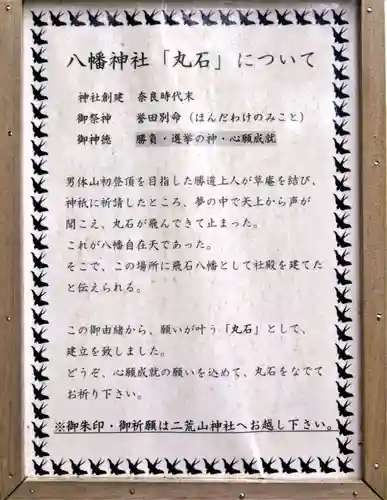 八幡神社「丸石」について
神社創建 奈良時代末
御祭神 誉田別命（ほんだわけのみこと）
御神徳 勝負・選挙の神・心願成就
男体山初登頂を目指した勝道上人が草庵を結び、
神祇に祈請したところ、夢の中で天上から声が
聞こえ、丸石が飛んできて止まった。
これが八幡自在天であった。
そこで、この場所に飛石八幡として社殿を建てた
と伝えられる。
この御由緒から、願いが叶う「丸石」として、
建立を致しました。
どうぞ、心願成就の願いを込めて、丸石をなでて
お祈り下さい。
※御朱印・御祈願は二荒山神社へお越し下さい。